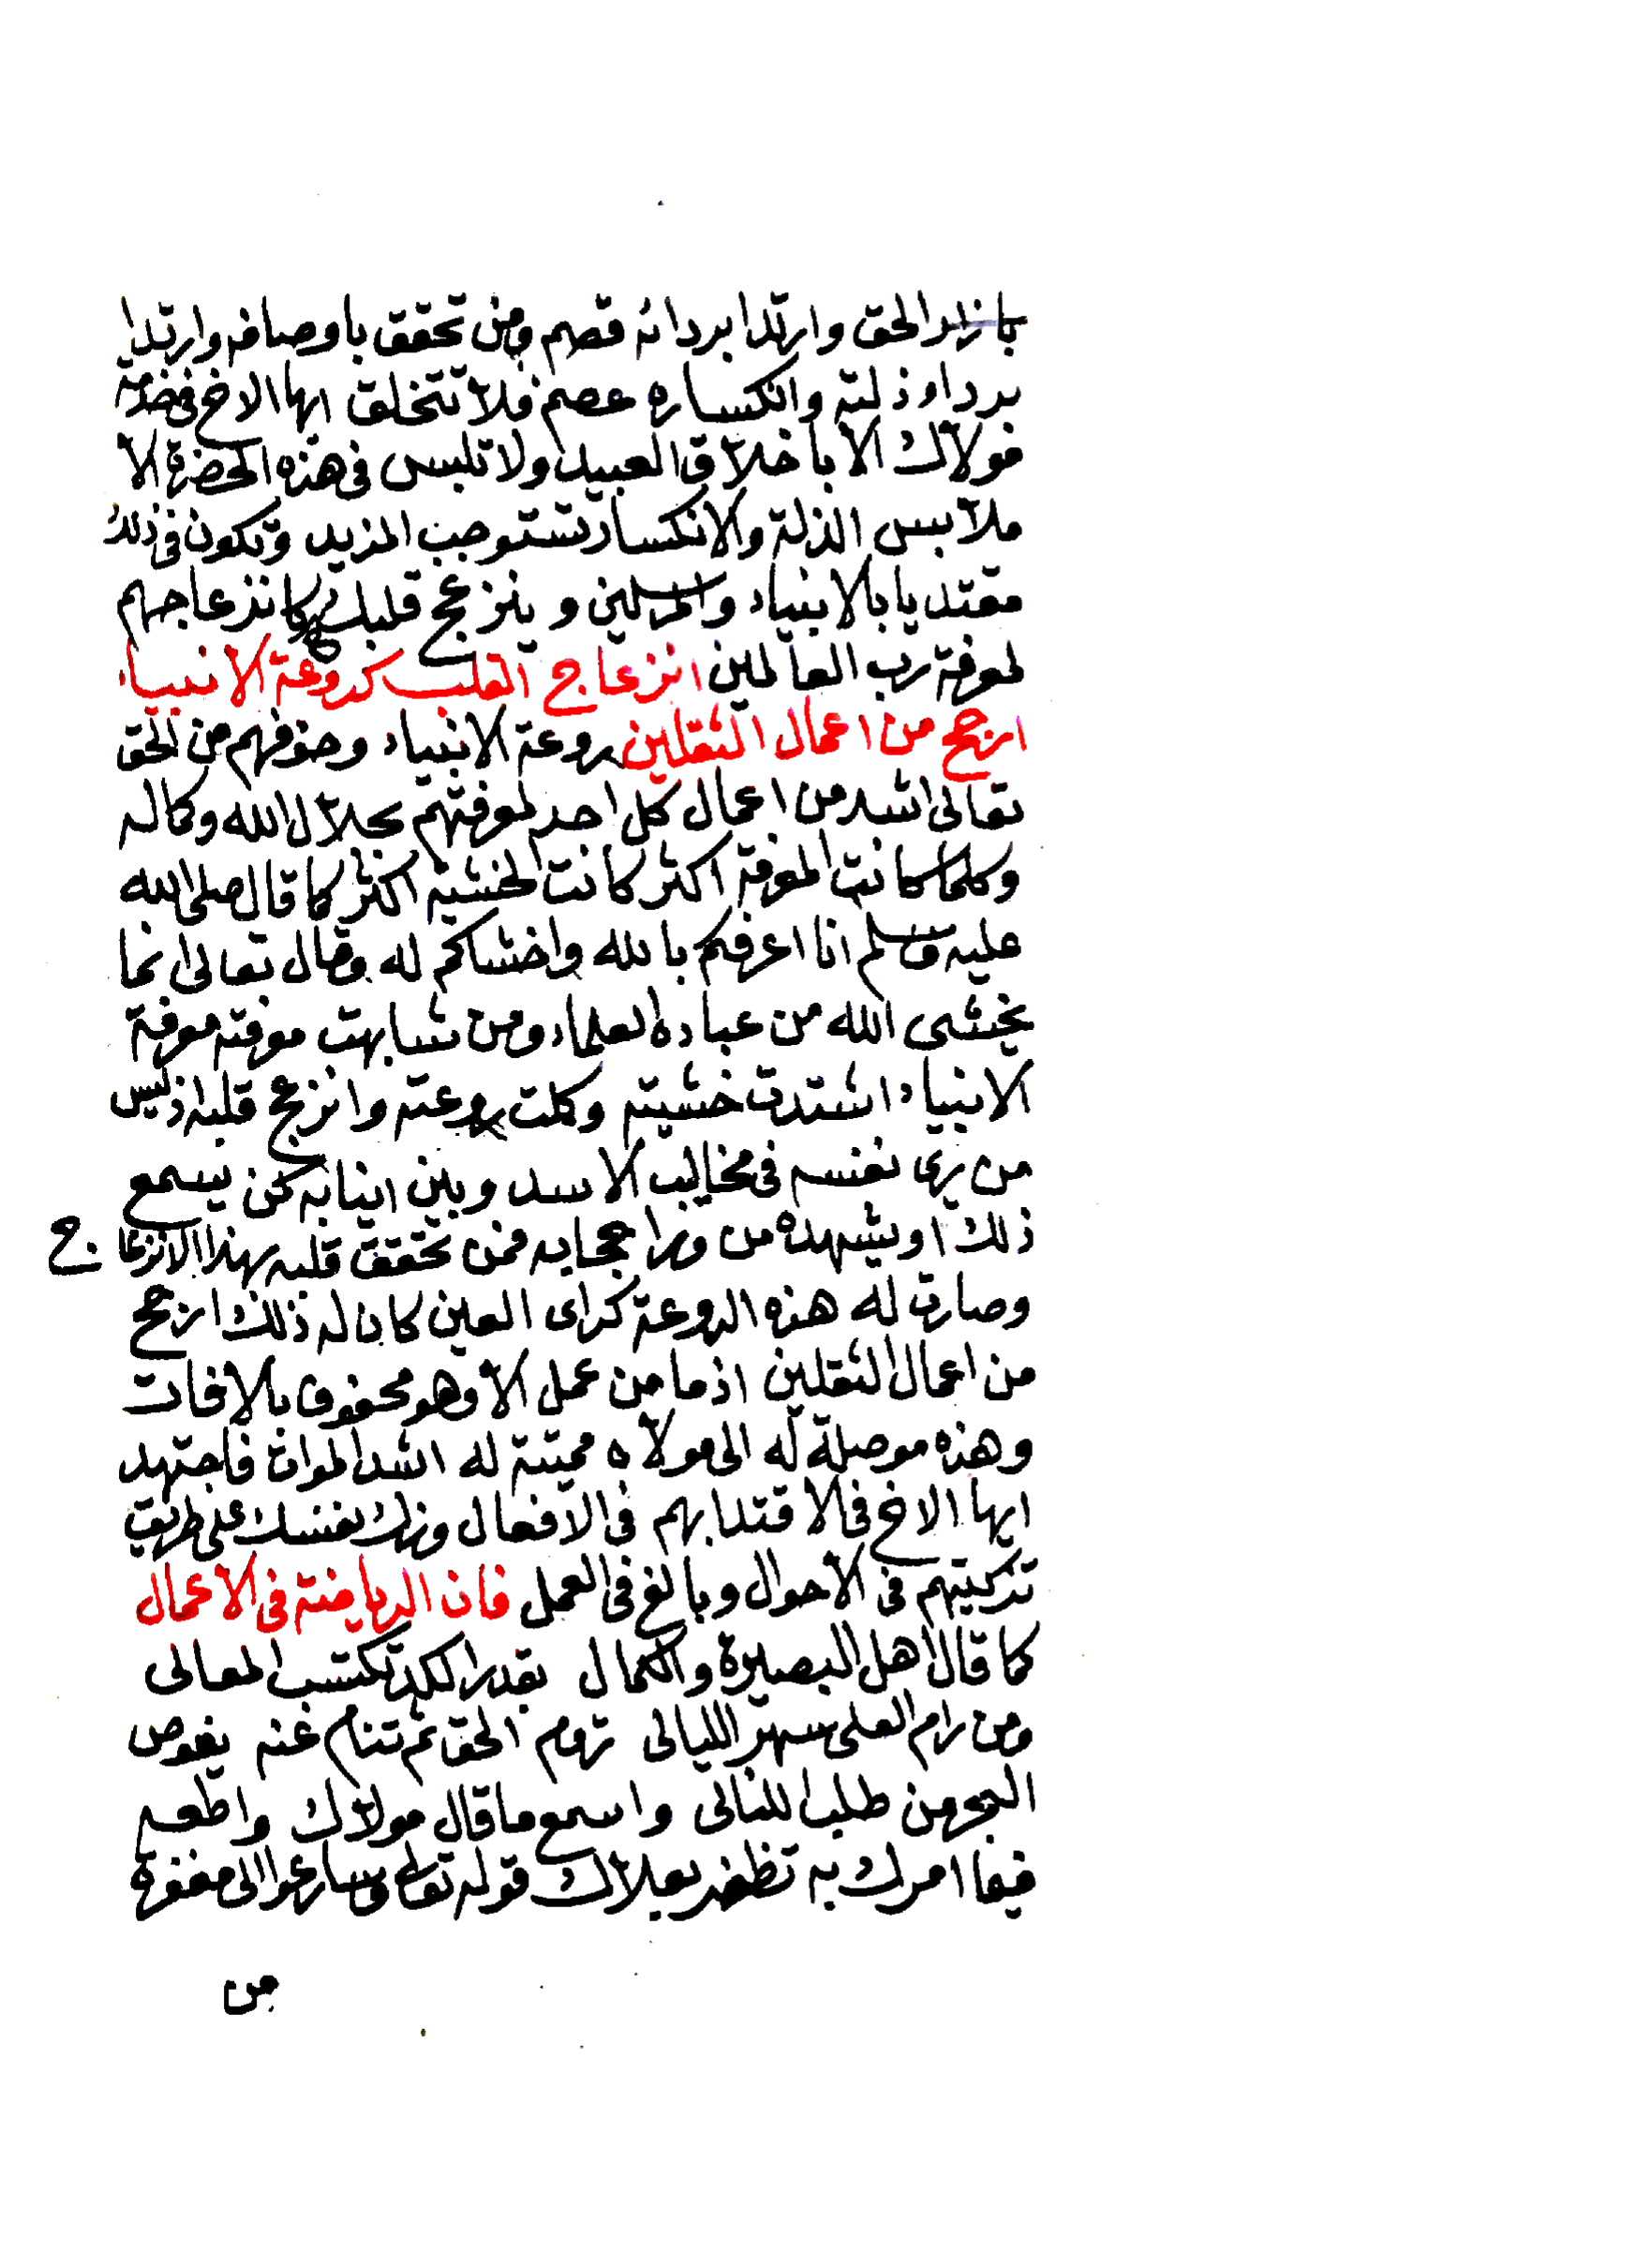 بازار الحق وارتدا بردائه قصم ومن تحقق باوصافه وارتدا
برداء ذلته وانكساره عصم فلا تتخلق ايها الاخ في خدمة
مولاك الا باخلاق العبيد ولا تلبس في هذه الحضرة الا
ملابس الذلة والانكسار تستوجب المزيد وتكون في ذلك
مقتديا بالانبياء والمرسلين وينزعج قلبك كانزعاجهم
لمعرفة رب العالمين انزعاج القلب كروعة الانبياء
ارجح من اعمال الثقلين روعة الانبياء وخوفهم من الحق
تعالى اشد من اعمال كل احد لمعرفتهم بجلال الله وكماله
وكلما كانت المعرفة اكثر كانت الخشية اكثر كما قال صلى الله
عليه وسلم انا اعرفكم بالله واخشاكم له وقال تعالى انما
يخشى الله من عباده العلماء ومن شابهت معرفته معرفة
الانبياء اشتدت خشيته وكملت روعته وانزعج قلبه اذ ليس
من يرى نفسه في مخاليب الاسد وبين انيابه كمن يسمع
ذلك او يشهده من ورا حجابه فمن تحقق قلبه بهذا الانزعاج
وصارت له هذه الروعة كراى العين كان له ذلك ارجح
من اعمال الثقلين اذ ما من عمل الا وهو محفوف بالافات
وهذه موصلة له الى مولاه مميتة له اشد الموات فاجتهد
ايها الاخ في الاقتدا بهم في الافعال وزك نفسك على طريق
تزكيتهم في الاحوال وبالغ في العمل فان الرياضة في الاعمال
كما قال اهل البصيرة والكمال بقدر الكد تكتسب المعالى
ومن رام العلى سهر الليالى تروم الحق ثم تنام عنه يغوص
البحر من طلب اللئالى واسمع ما قال مولاك واطعه
فيما امرك به تظفر بعلاك قوله تعالى وسارعوا الى مغفرة
من